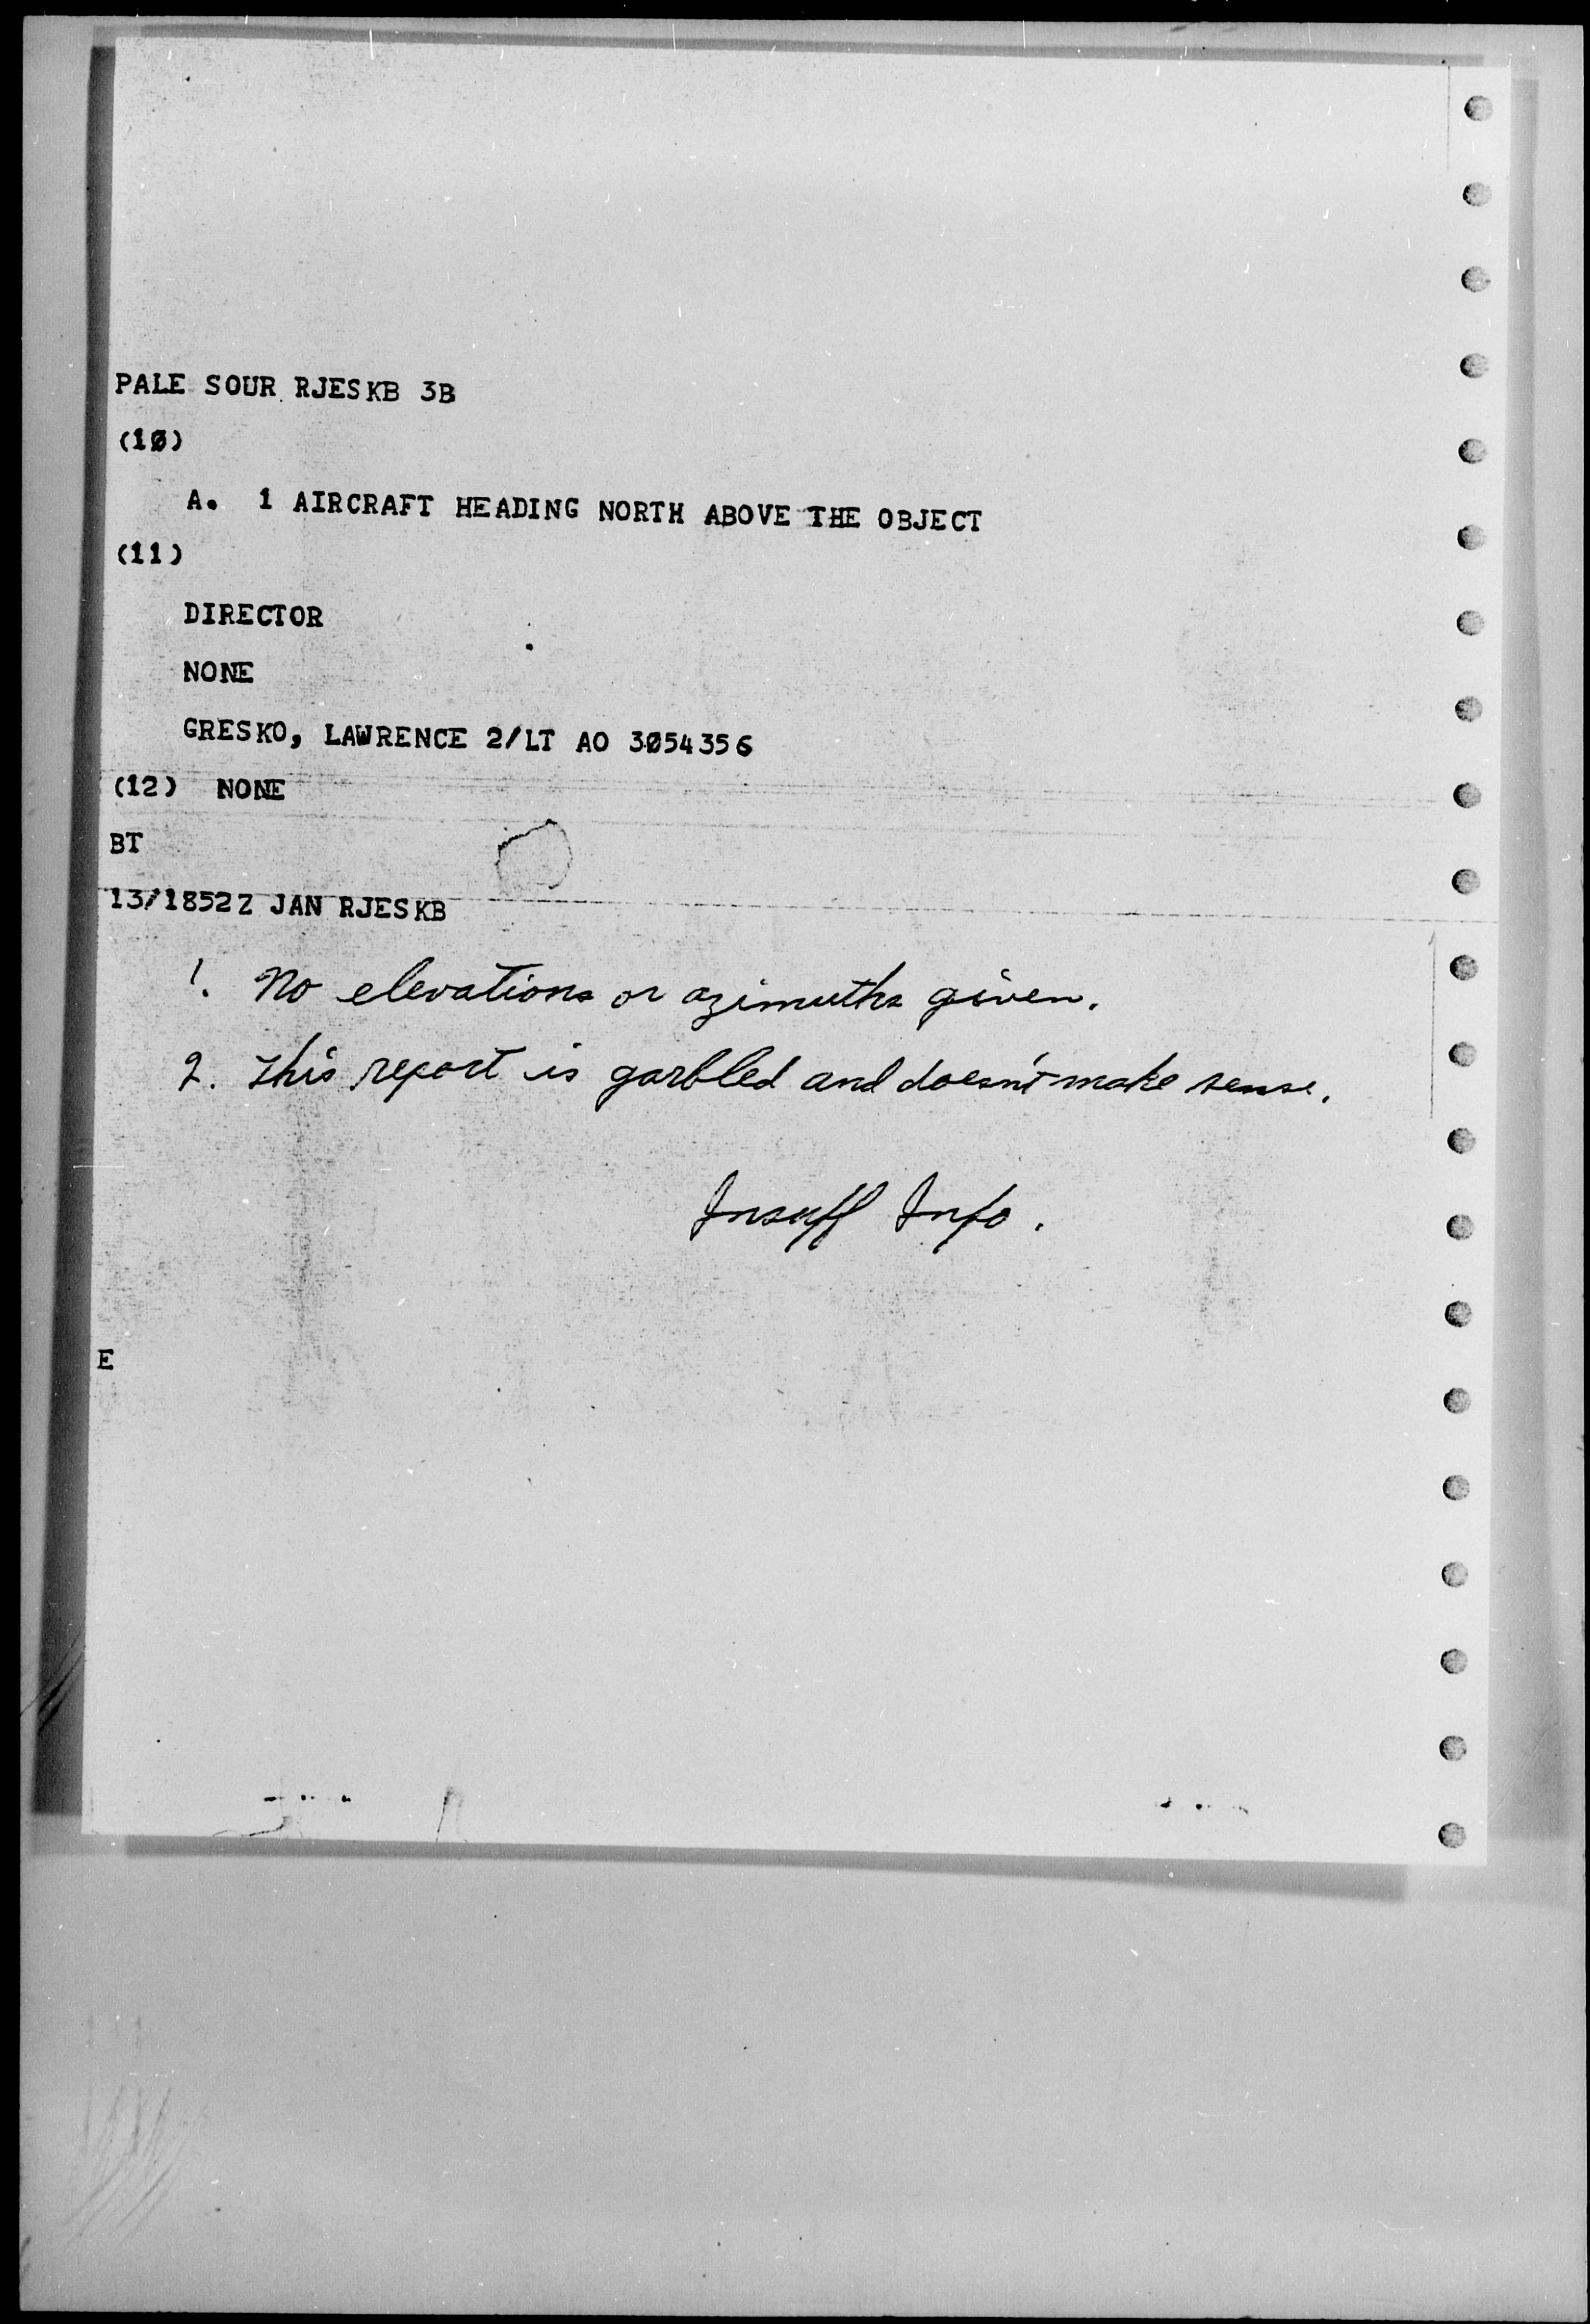 PALE SOUR RJESKB 3B
(10)
A. 1 AIRCRAFT HEADING NORTH ABOVE THE OBJECT
(11)
DIRECTOR
NONE
GRESKO, LAWRENCE 2/LT AO 3054356
(12) NONE
BT
13/1852Z JAN RJESKB
1. No elevations or azimuths given.
2. This report is garbled and doesn't make sense.
Insuff Info.
E